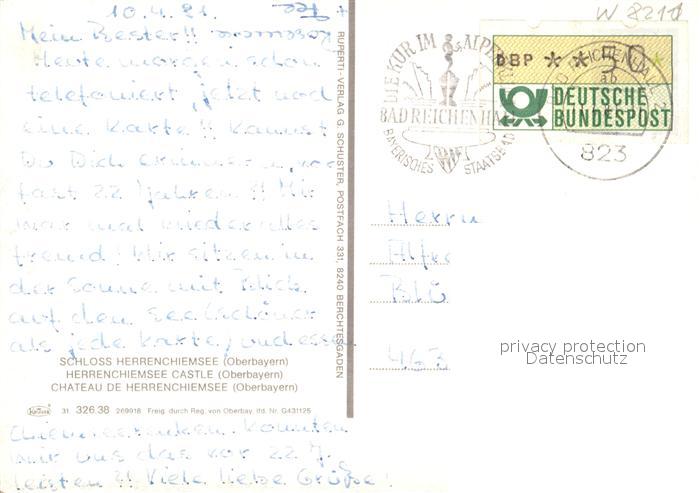 10.4.81.
Mein Bester!!
Heute morgen schon
telefoniert, jetzt noch
eine Karte!! Kannst
Du Dich erinnern, vor
fast 22 Jahren!! Mir
war mal wieder alles
fremd! Wir sitzen in
der Sonne mit Blick
auf den See (schöner
als jede Karte) und essen
SCHLOSS HERRENCHIEMSEE (Oberbayern)
HERRENCHIEMSEE CASTLE (Oberbayern)
CHATEAU DE HERRENCHIEMSEE (Oberbayern)
Krüger 31. 326.38 269918 Freig. durch Reg. von Oberbay. lfd. Nr. G431125
Konnten
wir uns das vor 22 J.
leisten?! Viele liebe Grüße!
RUPERTI-VERLAG G. SCHUSTER, POSTFACH 331, 8240 BERCHTESGADEN
W 8211
DIE KUR IM ALPEN
BAD REICHENHA
BAYERISCHES STAATSBAD
DBP * * 50 *
DEUTSCHE
BUNDESPOST
REICHENHALL
ab
823
Herrn
Alfre
Blü
463
privacy protection
Datenschutz